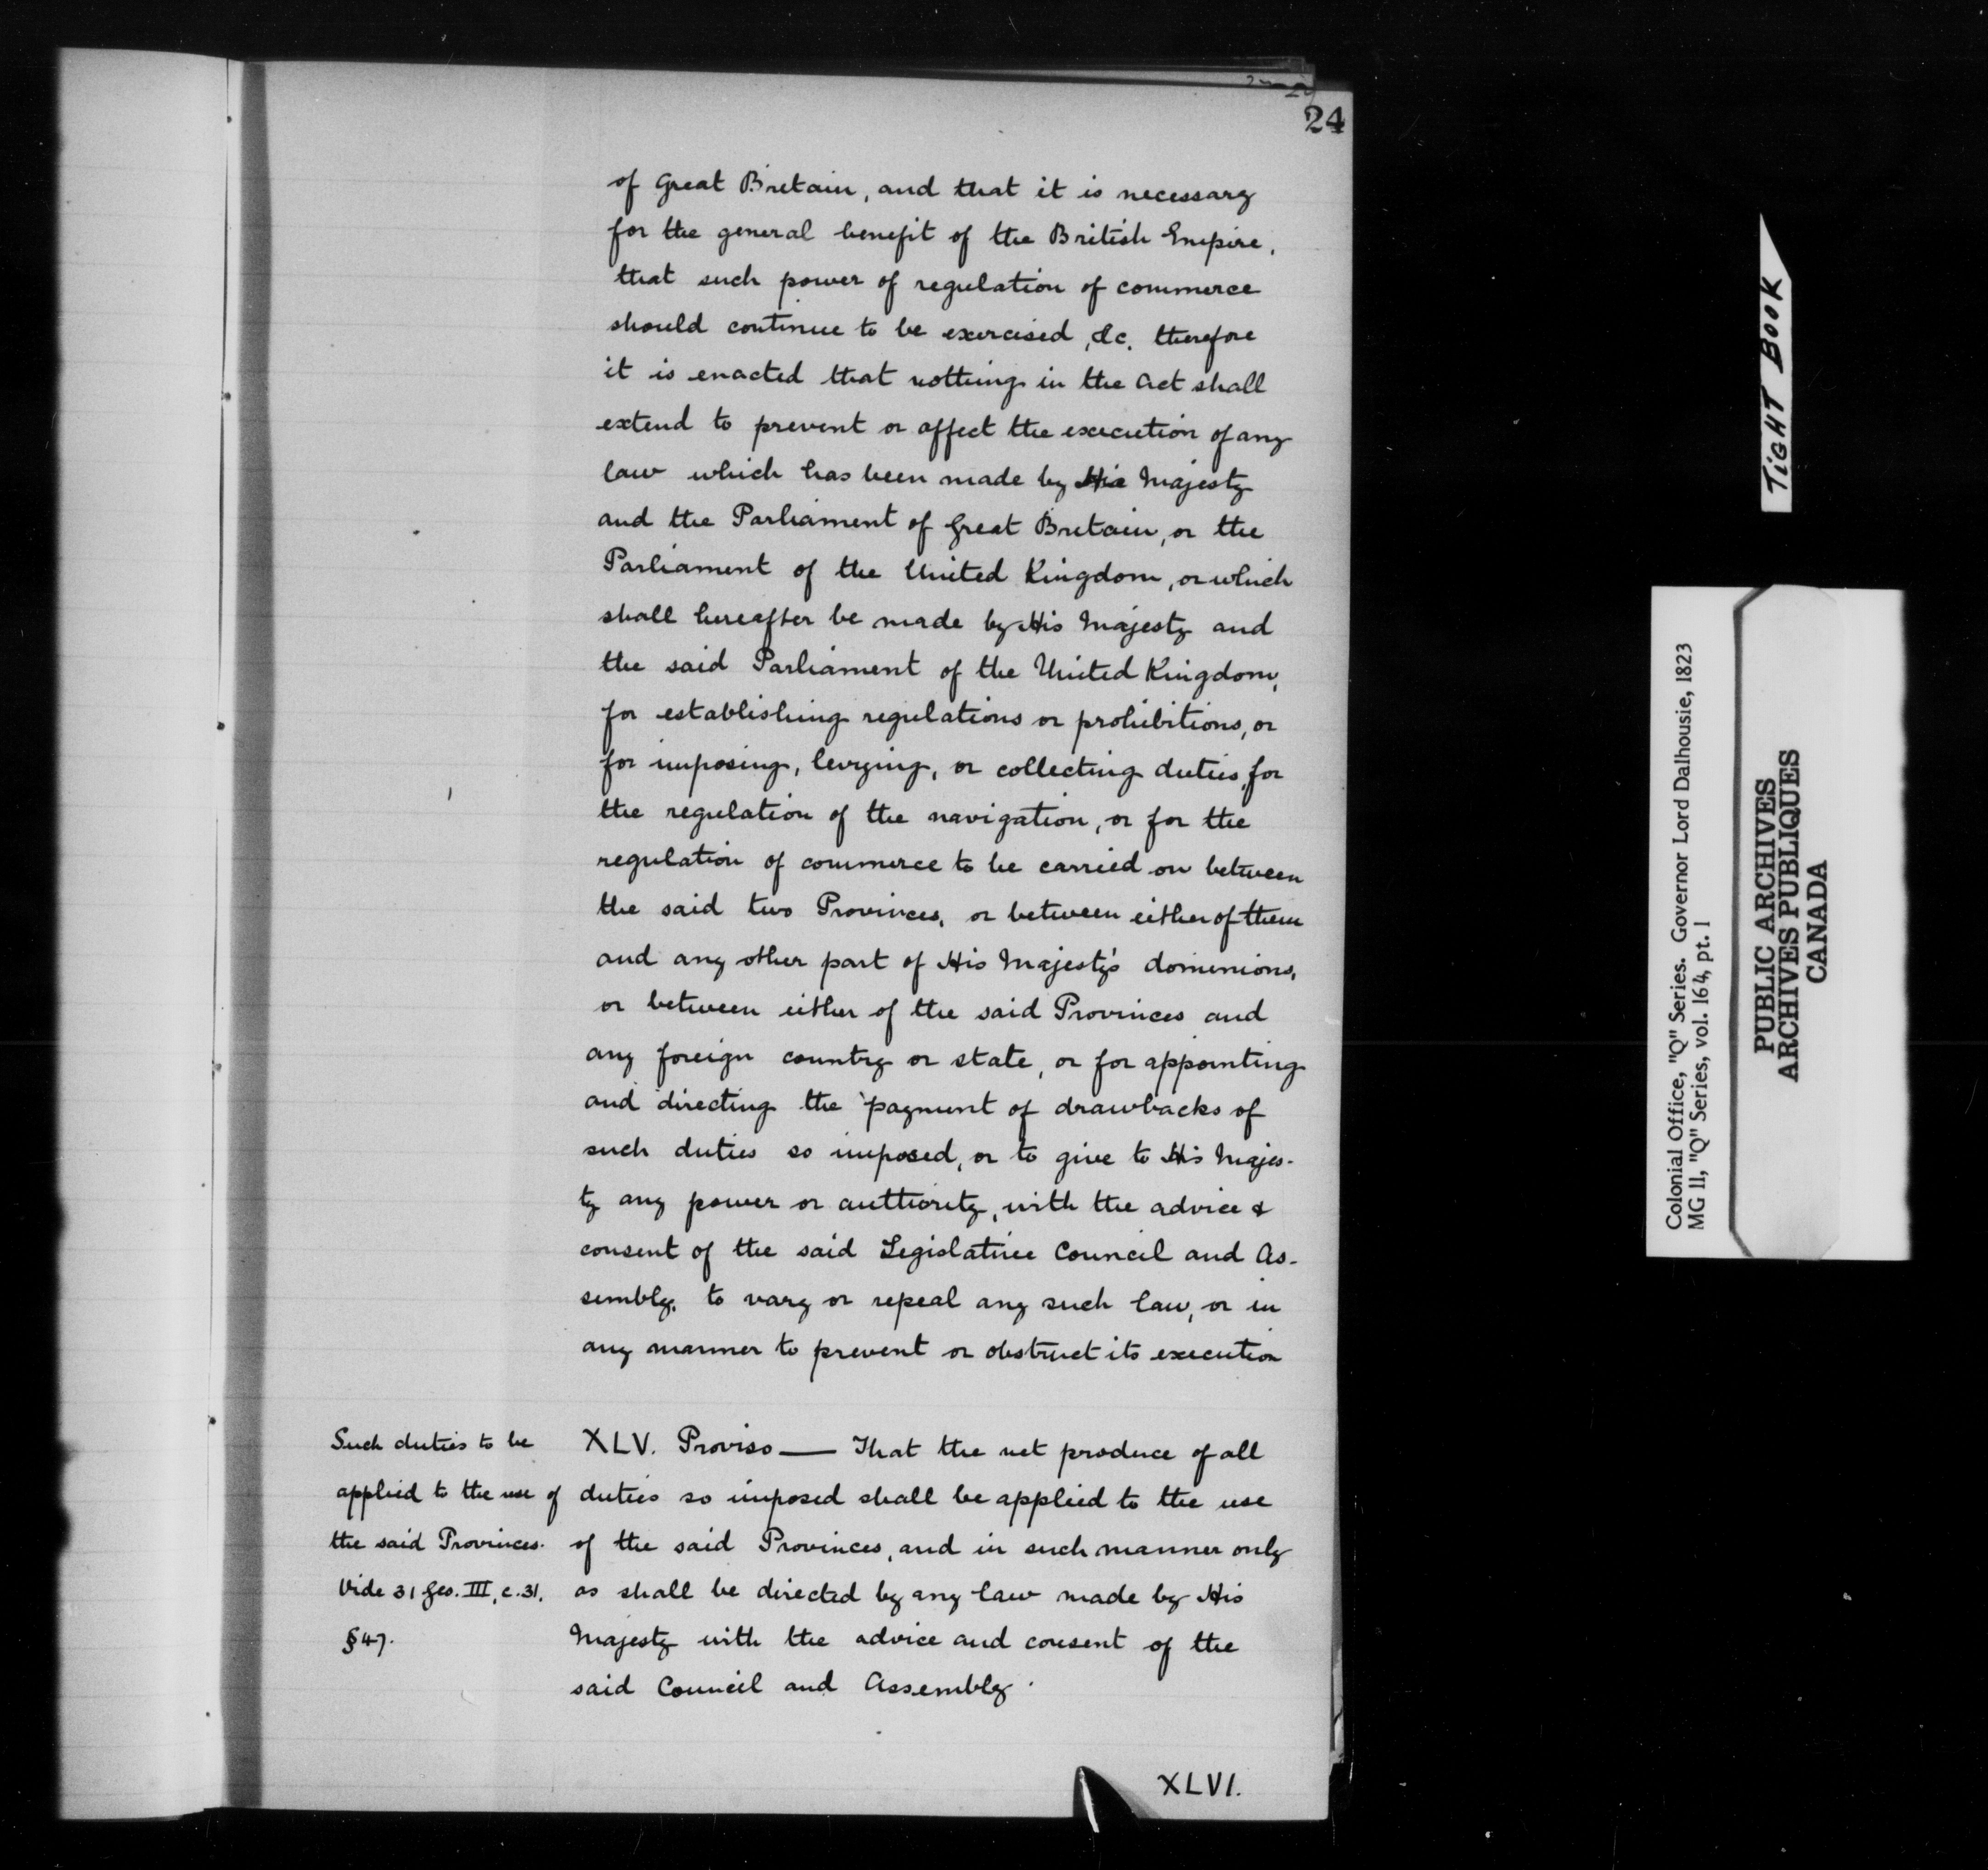 24
of Great Britain, and that it is necessary
for the general benefit of the British Empire,
that such power of regulation of commerce
should continue to be exercised, &c. therefore
it is enacted that nothing in the Act shall
extend to prevent or affect the execution of any
law which has been made by His Majesty
and the Parliament of Great Britain, or the
Parliament of the United Kingdom, or which
shall hereafter be made by His Majesty and
the said Parliament of the United Kingdom,
for establishing regulations or prohibitions, or
for imposing, levying, or collecting duties, for
the regulation of the navigation, or for the
regulation of commerce to be carried on between
the said two Provinces, or between either of them
and any other part of His Majesty's dominions,
or between either of the said Provinces and
any foreign country or state, or for appointing
and directing the payment of drawbacks of
such duties so imposed, or to give to His Majes-
ty any power or authority, with the advice &
consent of the said Legislative Council and As-
sembly, to vary or repeal any such law, or in
any manner to prevent or obstruct its execution
Such duties to be
applied to the use of
the said Provinces.
Vide 31 Geo. III, c. 31,
§ 47.
XLV. Proviso — That the net produce of all
duties so imposed shall be applied to the use
of the said Provinces, and in such manner only
as shall be directed by any law made by His
Majesty with the advice and consent of the
said Council and Assembly.
XLVI.
TIGHT BOOK
Colonial Office, "Q" Series. Governor Lord Dalhousie, 1823
MG 11, "Q" Series, vol. 164, pt. 1
PUBLIC ARCHIVES
ARCHIVES PUBLIQUES
CANADA